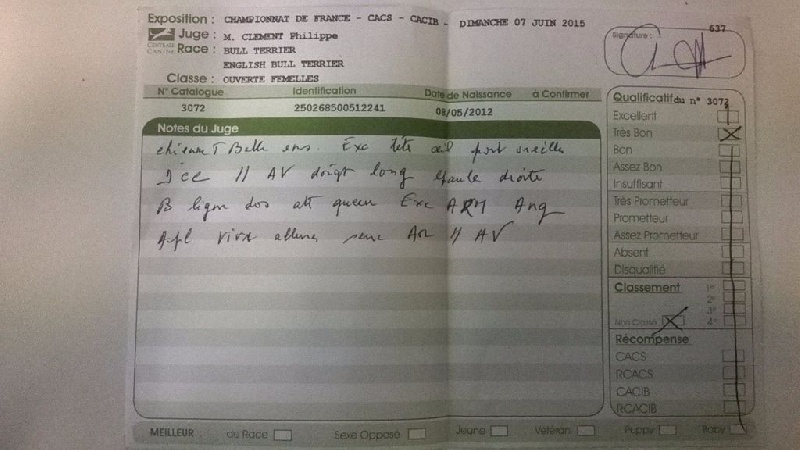 Exposition : CHAMPIONNAT DE FRANCE - CACS - CACIB - DIMANCHE 07 JUIN 2015
637
Juge : M. CLEMENT Philippe
Signature :
Race : BULL TERRIER
ENGLISH BULL TERRIER
Classe : OUVERTE FEMELLES
N° Catalogue Identification Date de Naissance à Confirmer
3072 250268500512241 08/05/2012
Qualificatif du n° 3072
Excellent
Très Bon
Bon
Assez Bon
Insuffisant
Très Prometteur
Prometteur
Assez Prometteur
Absent
Disqualifié
Notes du Juge
Belle ens. Exc tête port
// AV doigt long épaule droite
B ligne dos att queue Exc ARR Ang
Apl // AV
Classement
1er
2e
3e
4e
Non Classé
Récompense
CACS
RCACS
CACIB
RCACIB
MEILLEUR : de Race Sexe Opposé Jeune Vétéran Puppy Baby